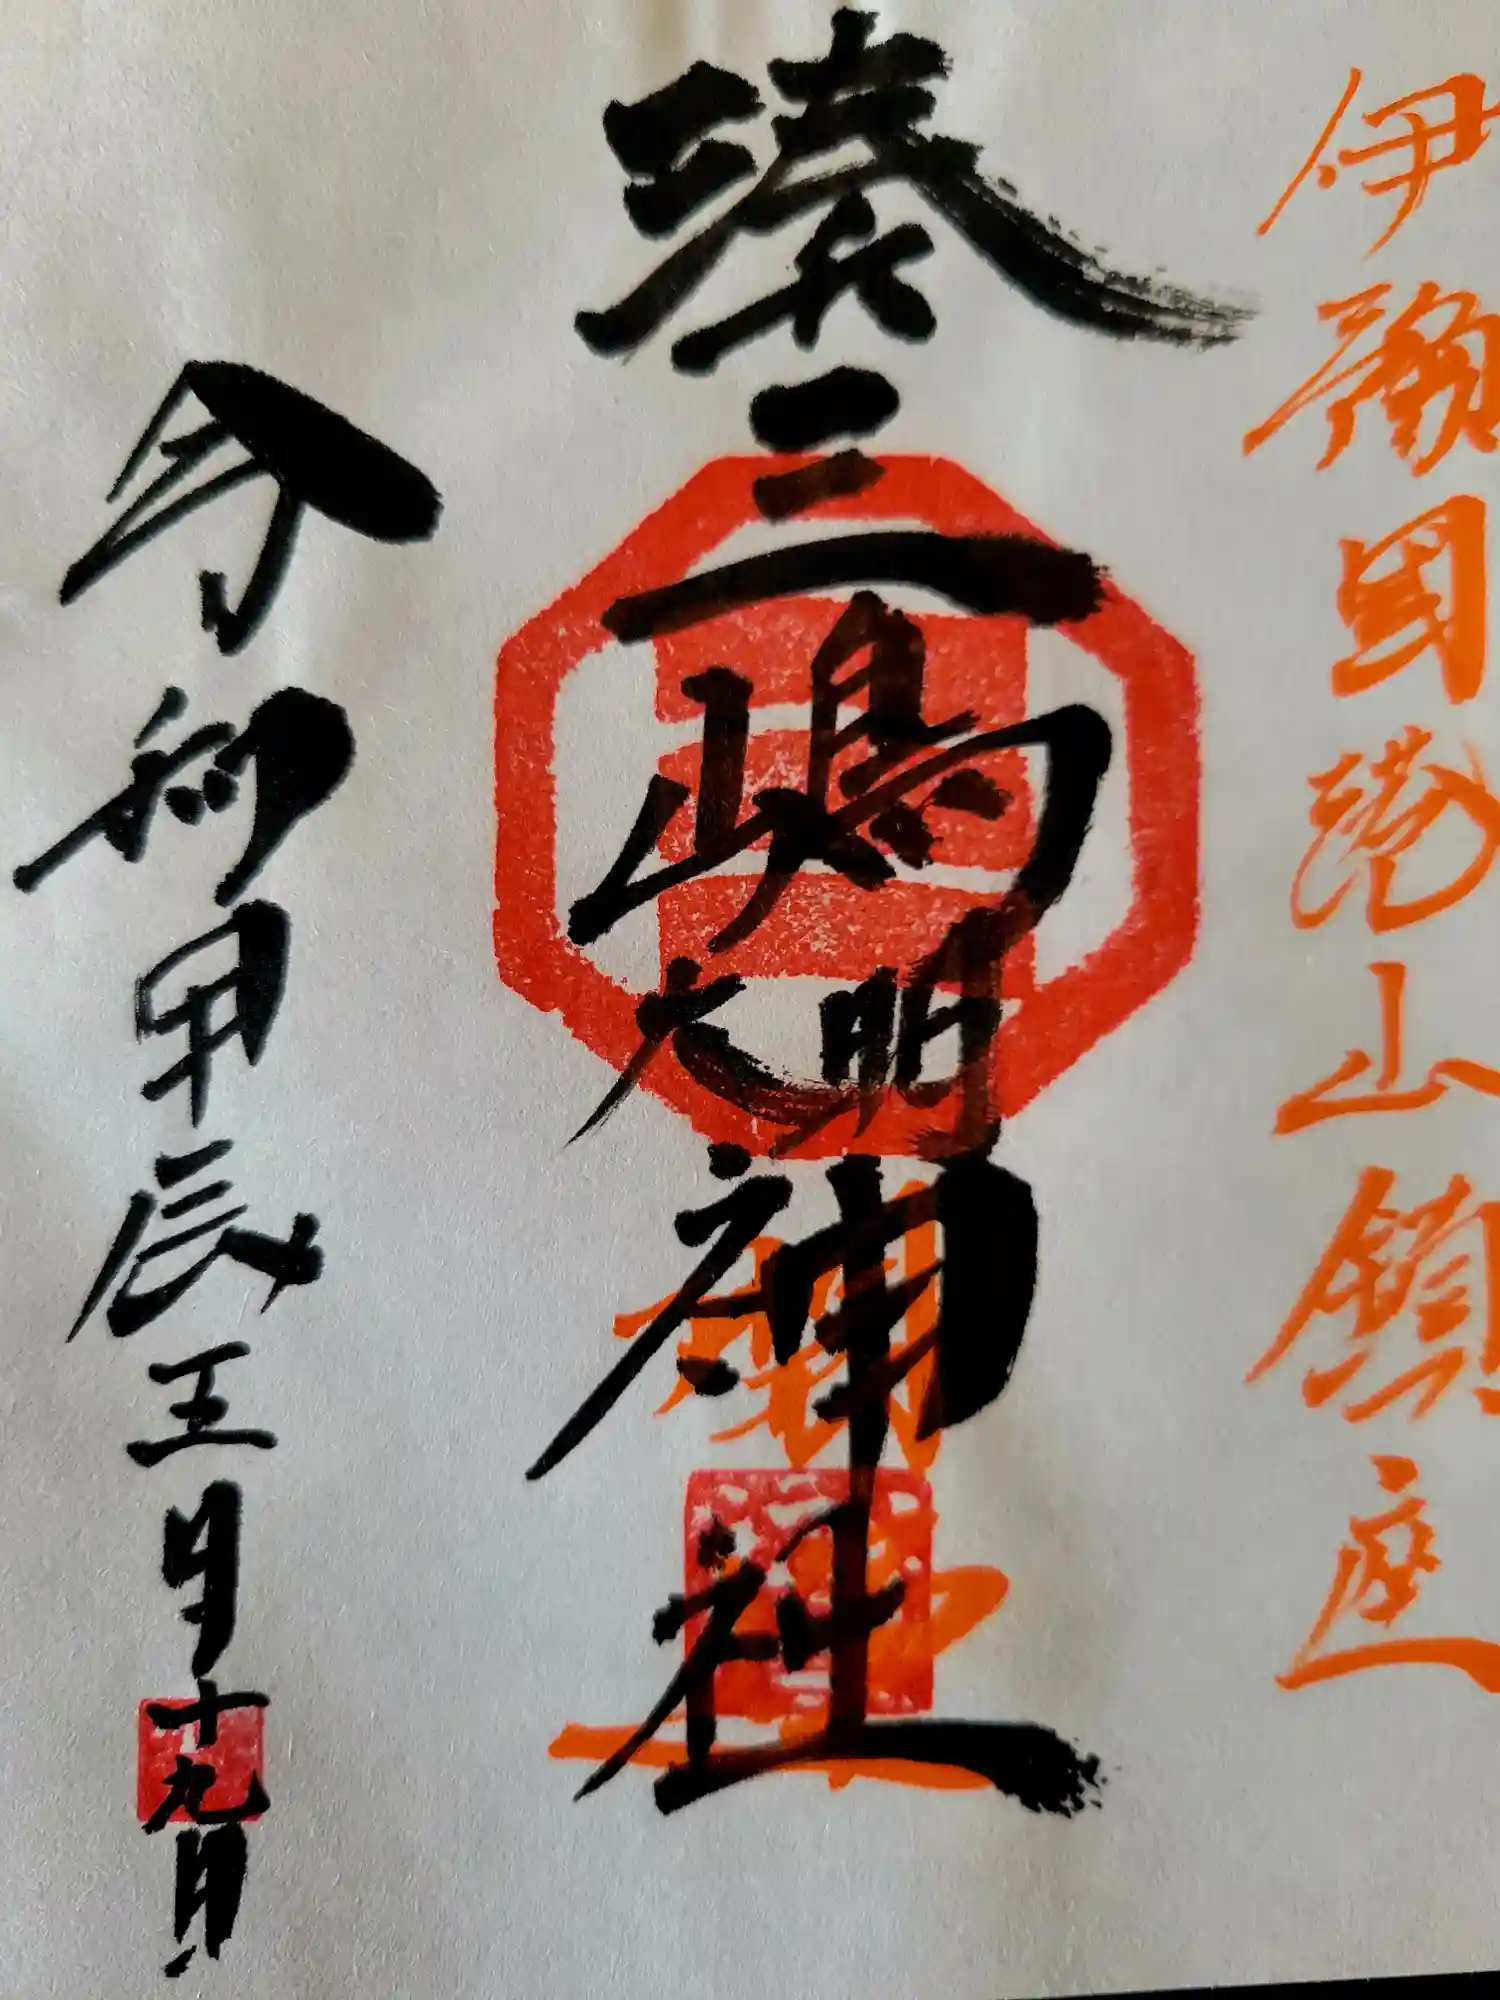 伊豫国港山鎮座
湊三嶋大明神社
奉拝
令和甲辰五月十九日